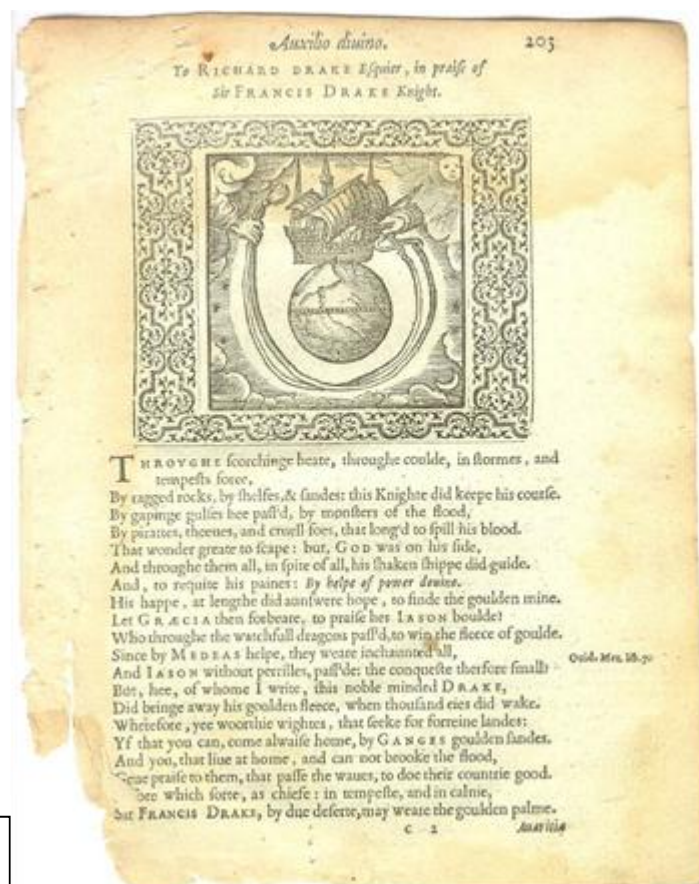 Auxilio diuino.
203
To RICHARD DRAKE Esquier, in praise of
Sir FRANCIS DRAKE Knight.
THROVGHE scorchinge heate, throughe coulde, in stormes, and
tempests force,
By ragged rocks, by shelfes, & sandes: this Knighte did keepe his course.
By gapinge gulfes hee pass'd, by monsters of the flood,
By pirattes, theeues, and cruell foes, that long'd to spill his blood.
That wonder greate to scape: but, GOD was on his side,
And throughe them all, in spite of all, his shaken shippe did guide.
And, to requite his paines: By helpe of power deuine.
His happe, at lengthe did aunswere hope, to finde the goulden mine.
Let GRÆCIA then forbeare, to praise her IASON boulde?
Who throughe the watchfull dragons pass'd, to win the fleece of goulde.
Since by MEDEAS helpe, they weare inchaunted all,
Ouid. Met. lib. 7.
And IASON without perrilles, pass'de: the conqueste therfore small?
But, hee, of whome I write, this noble minded DRAKE,
Did bringe away his goulden fleece, when thousand eies did wake.
Wherefore, yee woorthie wightes, that seeke for forreine landes:
Yf that you can, come alwaise home, by GANGES goulden sandes.
And you, that liue at home, and can not brooke the flood,
Geue praise to them, that passe the waues, to doe their countrie good.
which sorte, as chiefe: in tempeste, and in calme,
Sir FRANCIS DRAKE, by due deserte, may weare the goulden palme.
C 2
Auaritia